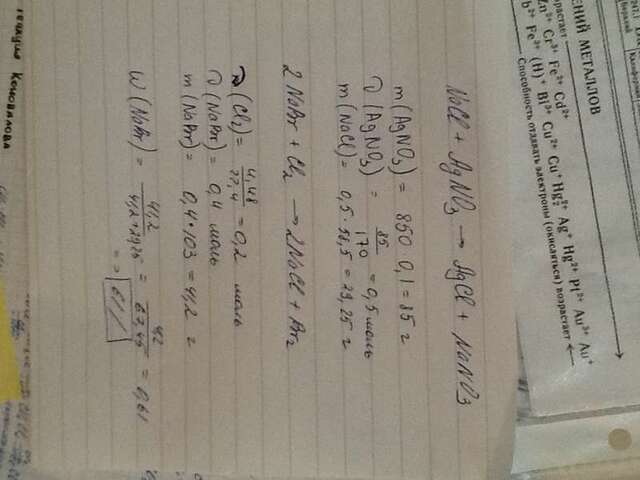 ЕНИЙ МЕТАЛЛОВ
возрастает
Zn²⁺ Cr³⁺ Fe²⁺ Cd²⁺
Pb²⁺ Fe³⁺ (H)⁺ Bi³⁺ Cu²⁺ Cu⁺ Hg₂²⁺ Ag⁺ Hg²⁺ Pt²⁺ Au³⁺ Au⁺
Способность отдавать электроны (окисляться) возрастает ←
NaCl + AgNO₃ → AgCl + NaNO₃
m(AgNO₃) = 850 · 0,1 = 85 г
ν(AgNO₃) = 85/170 = 0,5 моль
m(NaCl) = 0,5 · 58,5 = 29,25 г
2NaBr + Cl₂ → 2NaCl + Br₂
ν(Cl₂) = 4,48/22,4 = 0,2 моль
ν(NaBr) = 0,4 моль
m(NaBr) = 0,4·103 = 41,2 г
W(NaBr) = 41,2/41,2+29,25 = 42/67,45 = 0,61
=> 61%
Коновалова